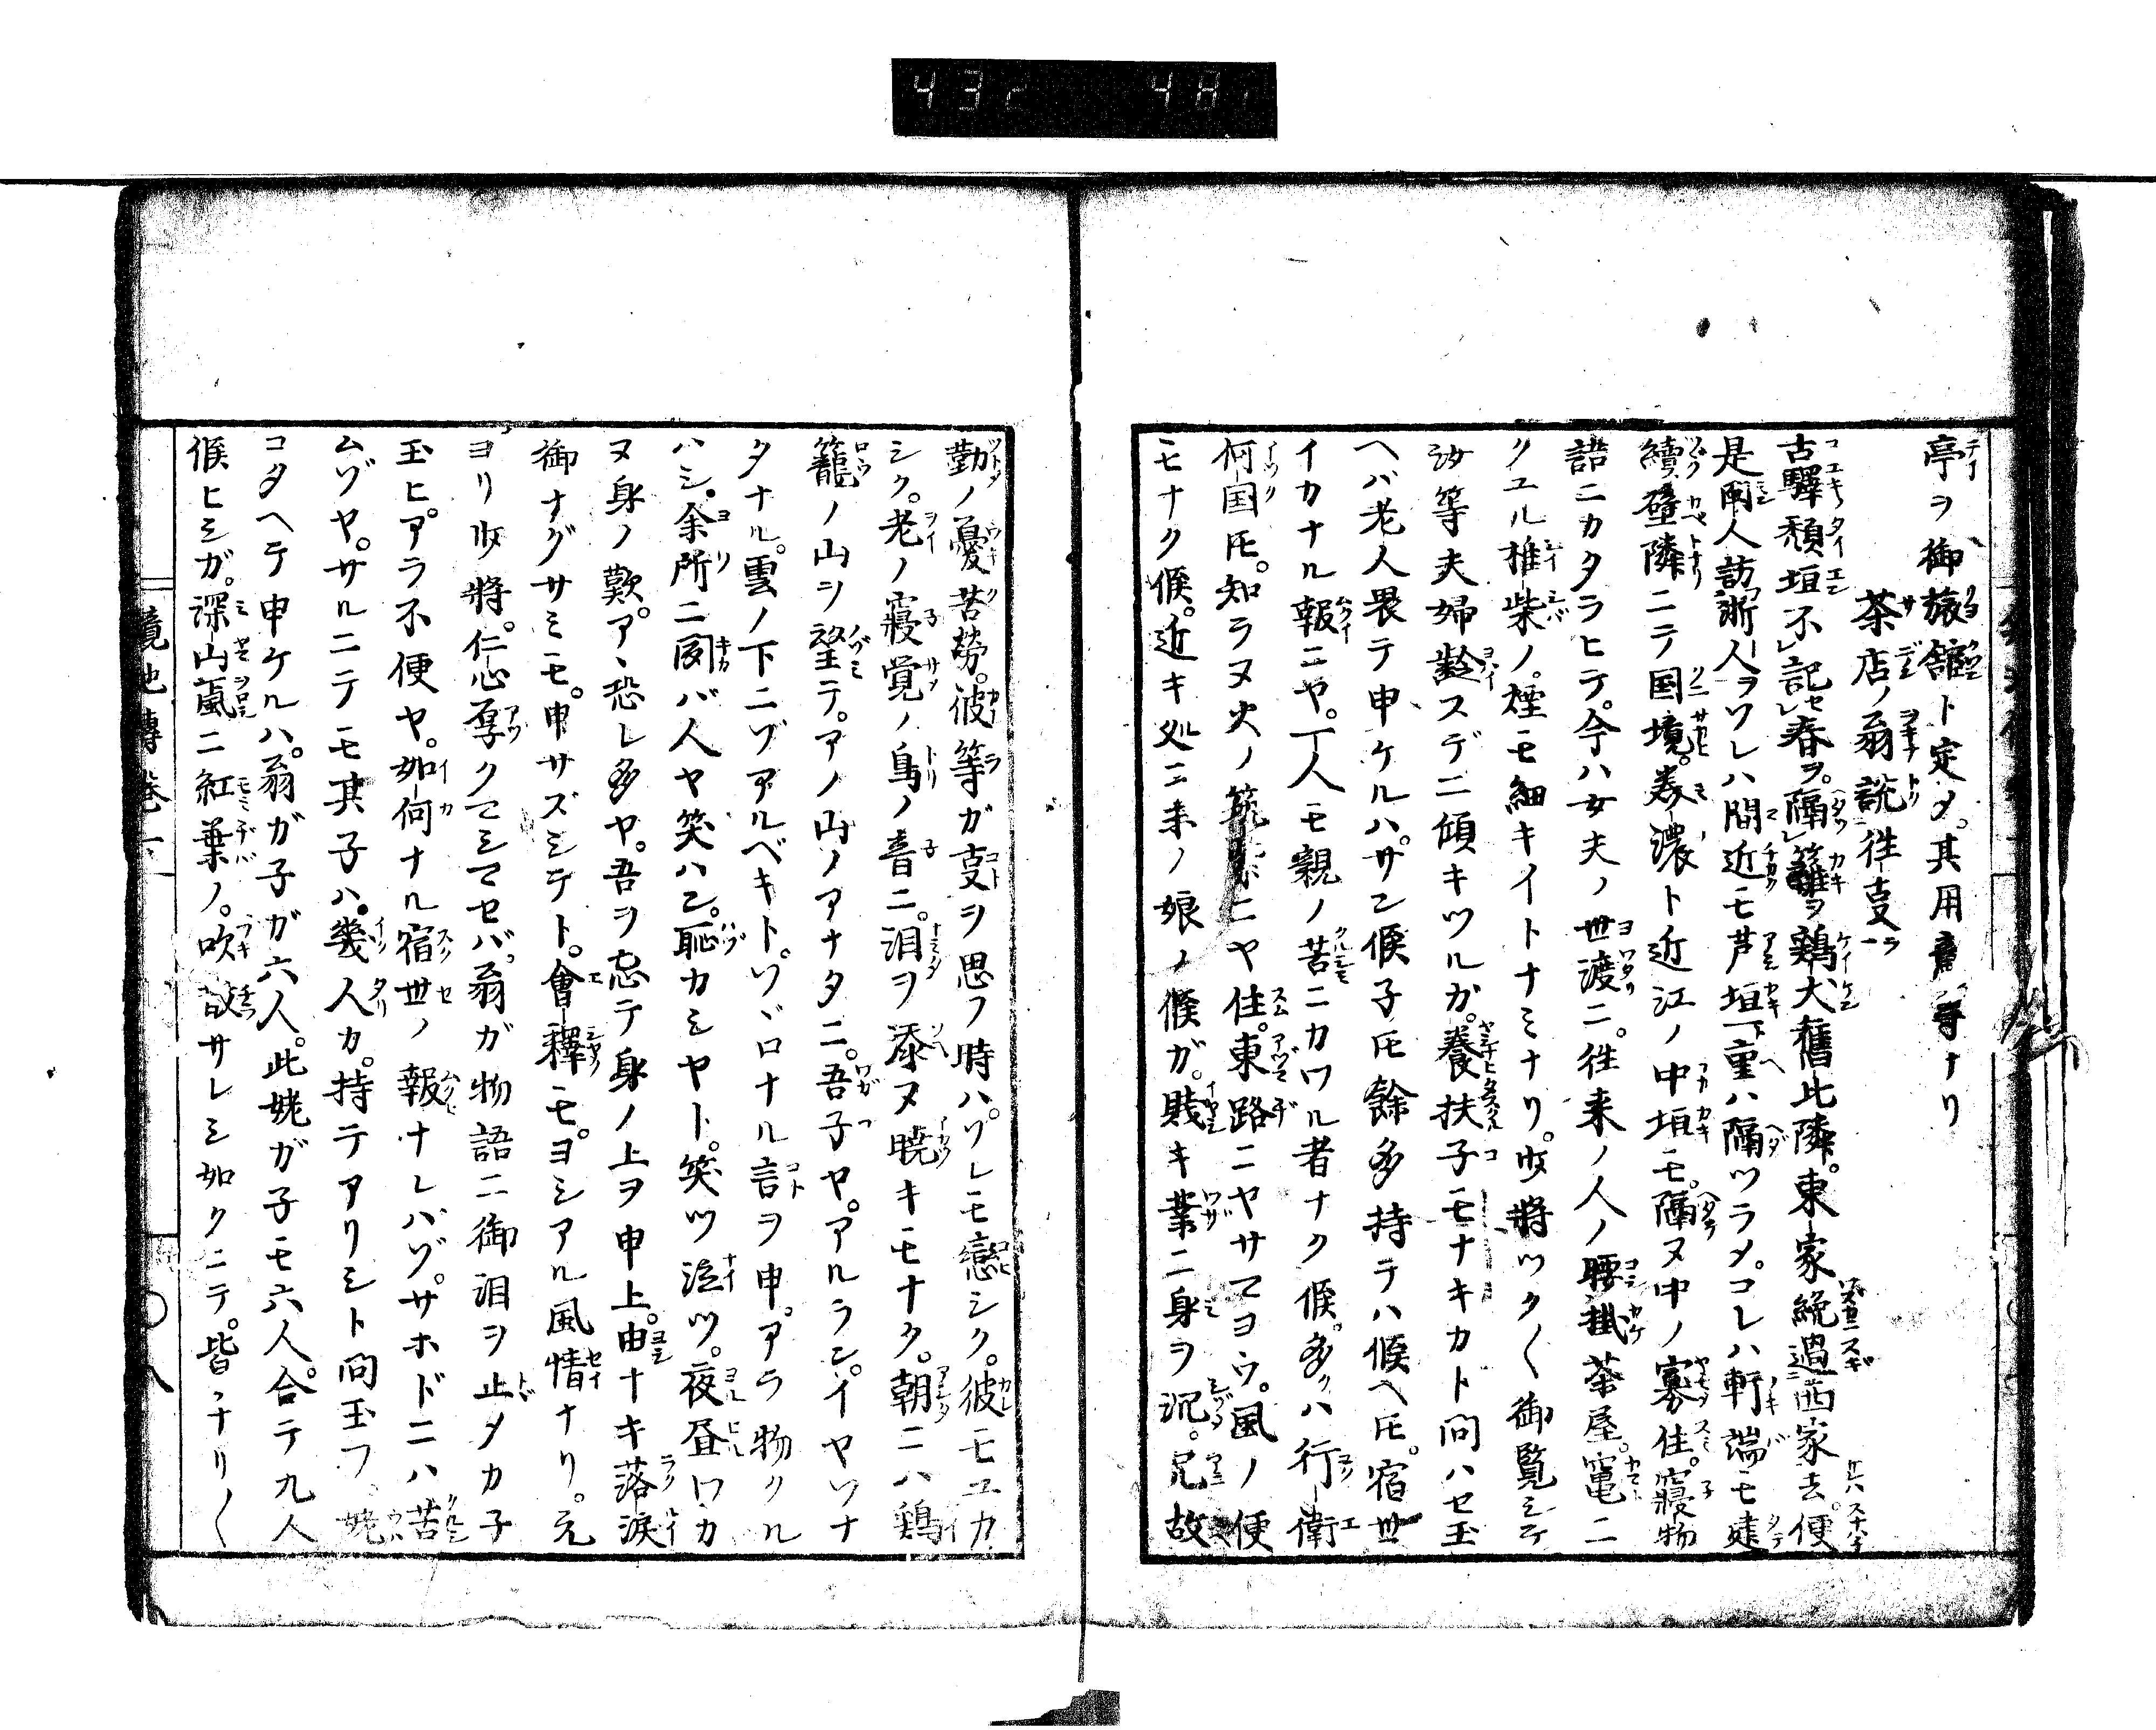 亭ヲ御旅舘ト定メ。其用意等ナリ
茶店ノ翁説往叓
古驛頽垣不レ記レ春ヲ。隔レ籬ヲ鶏犬舊比隣。東家纔過西家去。便
是開人訪浙人ラワレハ間近モ芦垣一重ハ隔ツラメ。コレハ軒端モ建
續壁隣ニテ国境。美濃ト近江ノ中垣モ。隔ヌ中ノ寡住。寢物
語ニカタラヒテ。今ハ女夫ノ世渡ニ。往来ノ人ノ腰掛茶屋。竃ニ
クユル椎柴ノ。煙モ細キイトナミナリ。將ツク〱御覧ジテ
汝等夫婦齡スデニ傾キツルガ。養扶子モナキカト問ハセ玉
ヘバ老人畏テ申ケルハ。サン候子𪜈餘多持テハ候ヘ𪜈。宿世
イカナル報ニヤ。一人モ親ノ苦ニカワル者ナク候。多クハ行衛
何国𪜈。知ラヌ火ノ筑紫ニヤ住。東路ニヤサマヨウ。風ノ便
モナク候。近キ処ニ末ノ娘ノ候ガ。賎キ業ニ身ヲ沉。兄故
勤ノ憂苦勞。彼等ガ叓ヲ思フ時ハ。ゾレモ戀シク。彼モユカ
シク。老ノ寢覚ノ鳥ノ音ニ。泪ヲ添ヌ曉キモナク。朝ニハ鶏
籠ノ山ヲ望テ。アノ山ノアナタニ。吾子ヤ。アルラン。イヤソナ
タナル。雲ノ下ニゾアルベキト。ソヾロナル言ヲ申。アラ物クル
ハシ。余所ニ聞バ人ヤ笑ハン。恥カシヤト。笑ツ泣ツ。夜昼ワカ
ヌ身ノ歎。アヽ恐レ多ヤ。吾ヲ忘テ身ノ上ヲ申上。由ナキ落涙
御ナグサミモ。申サズシテト。會釋モ。ヨシアル風情ナリ。元
ヨリ將。仁心厚クマシマセバ。翁ガ物語ニ御泪ヲ止メカ子
玉ヒ。アラ不便ヤ。如何ナル宿世ノ報ナレバゾ。サホドニハ苦
ムゾヤ。サルニテモ其子ハ。幾人カ。持テアリシト問玉フ。姥
コタヘテ申ケルハ。翁ガ子ガ六人。此姥ガ子モ六人。合テ九人
候ヒシガ。深山嵐ニ紅葉ノ。吹散サレシ如クニテ。皆チリ〱
傳巻一
〇八